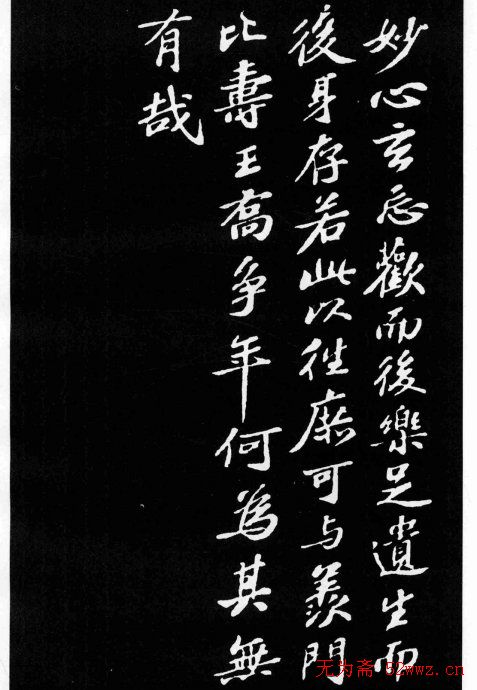 妙心玄忘歡而後樂足遺生而
後身存若此以往庶可与羨門
比壽王喬争年何為其無
有哉
无为斋 52wwz.cn